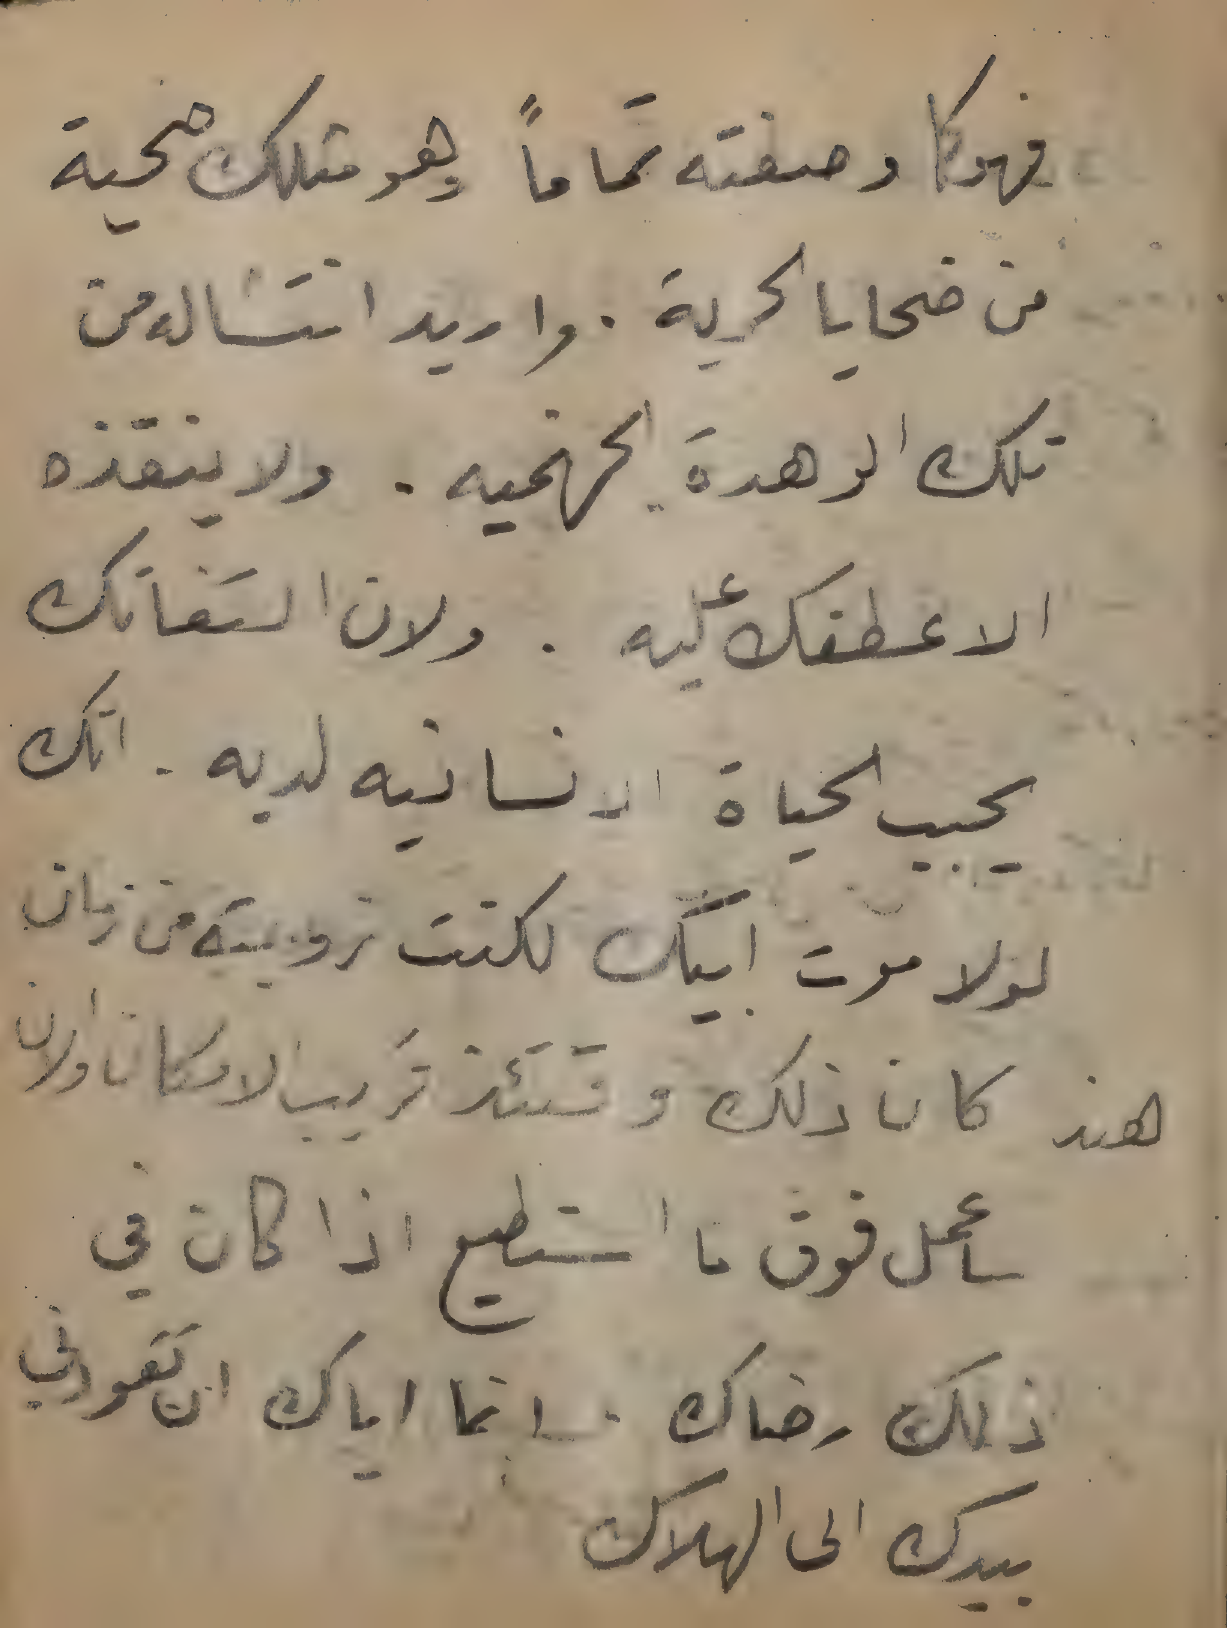 فهو كما وصفته تماماً وهو مثلك ضحية
من ضحايا الحرية . واريد انتشاله من
تلك الوهدة الجهنميه . ولا ينقذه
الا عطفك عليه . ولان التفاتك
يحيي الحياة الانسانيه لديه . انك
لولا موت ابيك لكنت تزوجته من زمان
هند كان ذلك وقتئذ قريب الامكان اولان
ساعمل فوق ما استطيع اذا كان في
ذلك رضاك . انما اياك ان تقودني
بيدك الى الهلاك